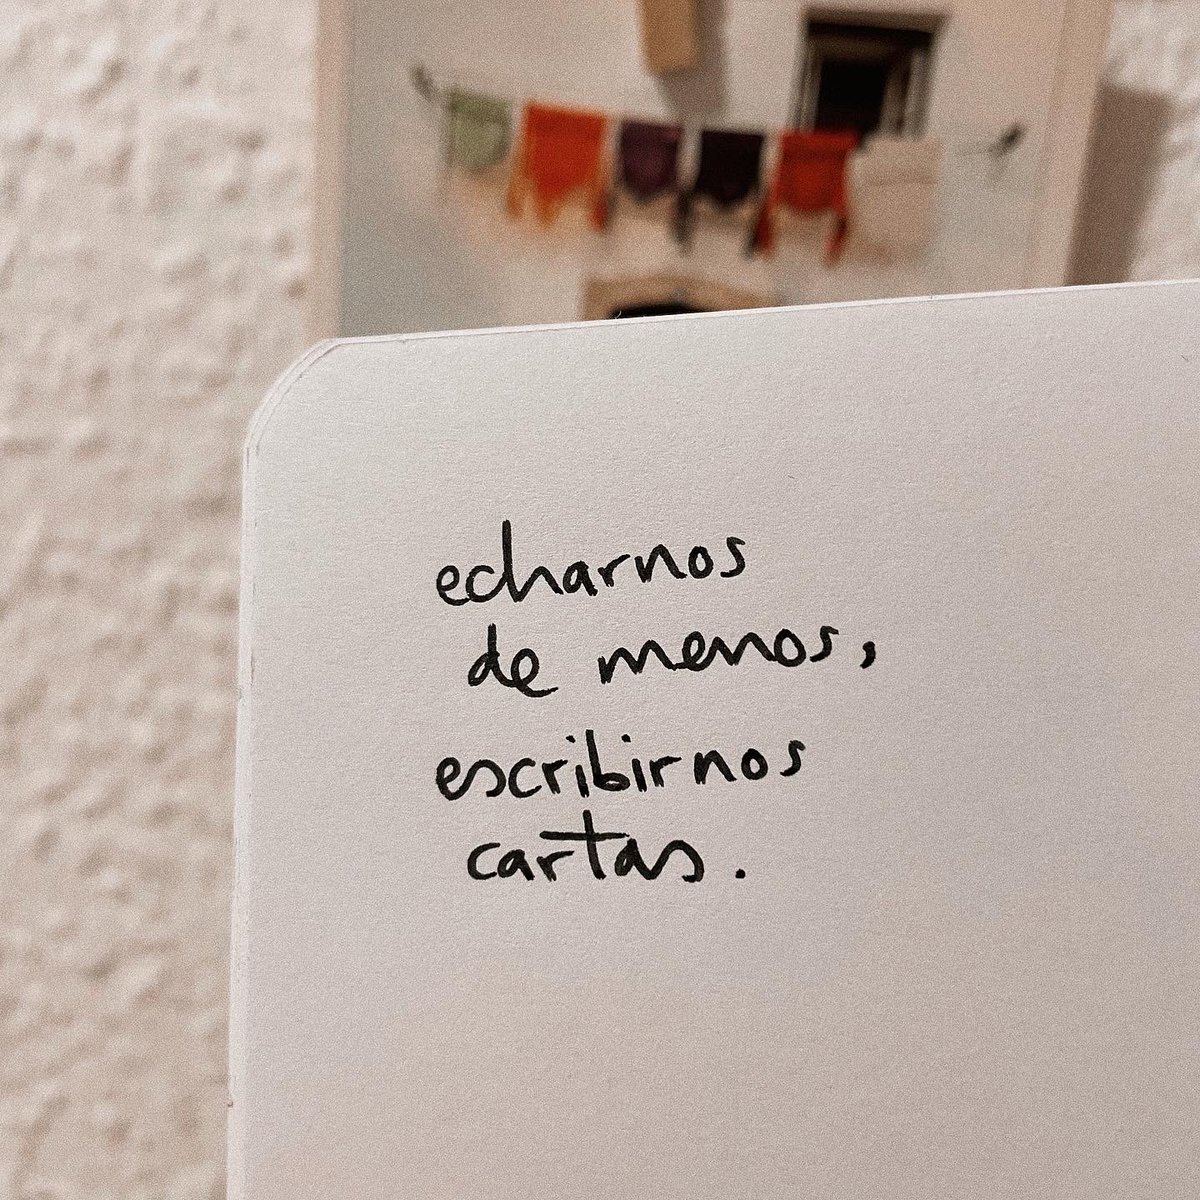 echarnos
de menos,
escribirnos
cartas.